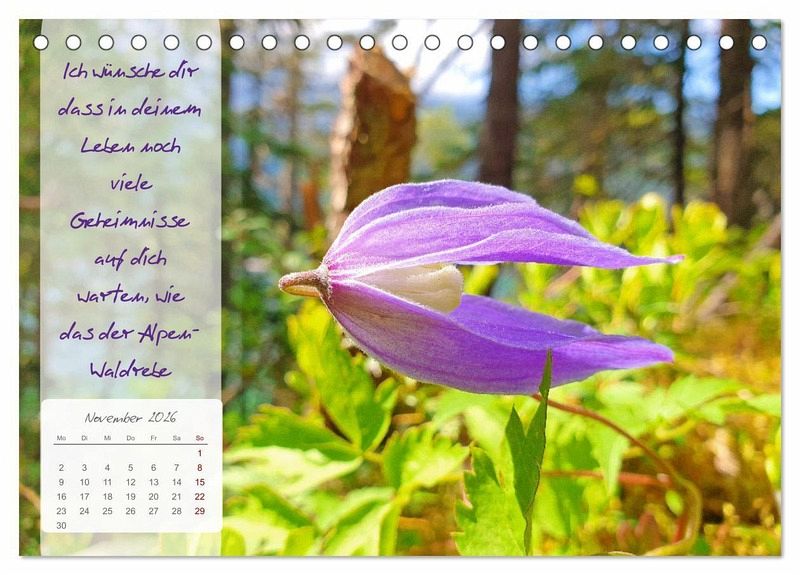 Ich wünsche dir
dass in deinem
Leben noch
viele
Geheimnisse
auf dich
warten, wie
das der Alpen-
Waldrebe
November 2026
Mo Di Mi Do Fr Sa So
1
2 3 4 5 6 7 8
9 10 11 12 13 14 15
16 17 18 19 20 21 22
23 24 25 26 27 28 29
30